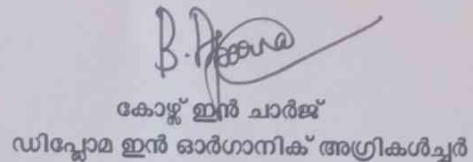 കോഴ്സ് ഇൻ ചാർജ്
ഡിപ്ലോമ ഇൻ ഓർഗാനിക് അഗ്രികൾച്ചർ